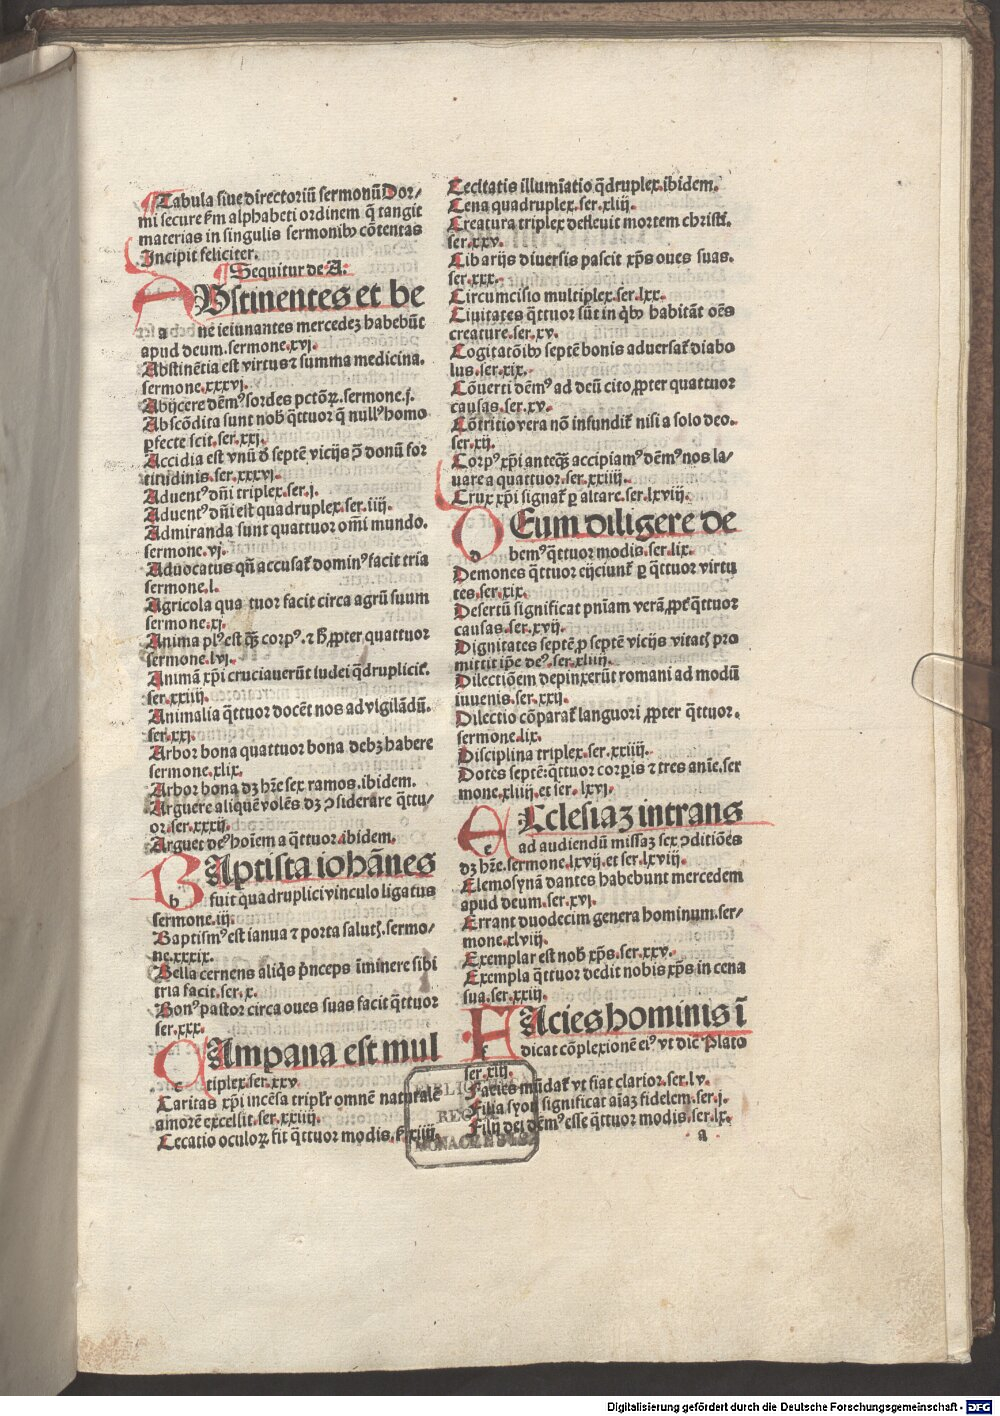 ¶Tabula siue directoriū sermonū Dor/
mi secure ẜm alphabeti ordinem q̄ tangit
materias in singulis sermonibꝰ cōtentas
Incipit feliciter.
¶Sequitur de A.
ABstinentes et be
a ne ieiunantes mercedeꝫ habebūt
apud deum.sermone.xvj.
Abstinētia est virtus ⁊ summa medicina.
sermone.xxxvj.
Abijcere dēmꝰ sordes pctōꝝ.sermone.j.
Abscōdita sunt nob̄ q̄ttuor q̄ nullꝰ homo
ꝑfecte scit.ser.xxj.
Accidia est vnū d̄ septē vicijs ꝯ̄ donū for
titudinis.ser.xxxvj.
Aduentꝰ dn̄i triplex.ser.j.
Aduentꝰ dn̄i est quadruplex.ser.iiij.
Admiranda sunt quattuor om̄i mundo.
sermone.vj.
Aduocatus qn̄ accusat̄ dominꝰ facit tria
sermone.l.
Agricola qua tuor facit circa agrū suum
sermone.xj.
Anima plꝰ est qȝ̄ corpꝰ.⁊ h̄ ꝓpter quattuor
sermone.lvj.
Animā xp̄i cruciauerūt iudei q̄druplicit̄.
ser.xxiiij.
Animalia q̄ttuor docēt nos ad vigilādū.
ser.xxj.
Arbor bona quattuor bona debꝫ habere
sermone.xlix.
Arbor bona dꝫ hr̄e sex ramos.ibidem.
Arguere aliquē volēs dꝫ ꝯsiderare q̄ttu/
or.ser.xxxij.
Arguet deꝰ hoīem a q̄ttuor.ibidem.
BAptista iohānes
b fuit quadruplici vinculo ligatus
sermone.iij.
Baptismꝰ est ianua ⁊ porta salutꝭ.sermo/
ne.xxxix.
Bella cernens aliq̄s p̄nceps īminere sibi
tria facit.ser.x.
Bonꝰ pastor circa oues suas facit q̄ttuor
ser.xxx.
CAmpana est mul
c tiplex.ser.xxv.
Caritas xp̄i incēsa triplr̄ omnē naturalē
amorē excellit.ser.xxiiij.
Cecatio oculoꝝ fit q̄ttuor modis.ẜ.xiiij.
Cecitatis illumīatio q̄druplex.ibidem.
Cena quadruplex.ser.xliij.
Creatura triplex defleuit mortem christi.
ser.xxv.
Cibarijs diuersis pascit xp̄s oues suas.
ser.xxx.
Circumcisio multiplex.ser.lxx.
Ciuitates q̄ttuor sūt in qͥbꝰ habitāt oēs
creature.ser.xv.
Cogitatōibꝰ septē bonis aduersat̄ diabo
lus.ser.xix.
Cōuerti dēmꝰ ad deū cito ꝓpter quattuor
causas.ser.xv.
Cōtritio vera nō infundit̄ nisi a solo deo.
ser.xij.
Corpꝰ xp̄i anteqȝ̄ accipiamꝰ dēmꝰ nos la/
uare a quattuor.ser.xxiiij.
Crux xp̄i signat̄ ꝑ altare.ser.lxviij.
DEum diligere de
d bemꝰ q̄ttuor modis.ser.lix.
Demones q̄ttuor eijciunt̄ ꝑ q̄ttuor virtu
tes.ser.xix.
Desertū significat pn̄iam verā ꝓpt̄ q̄ttuor
causas.ser.xvij.
Dignitates septē ꝓ septē vicijs vitatꝭ pro
mittit ip̄e deꝰ.ser.xliiij.
Dilectiōem depinxerūt romani ad modū
iuuenis.ser.xxij.
Dilectio cōparat̄ languori ꝓpter q̄ttuor.
sermone.lix.
Disciplina triplex.ser.xxiiij.
Dotes septē:q̄ttuor corꝑis ⁊ tres anīe.ser
mone.xliiij.et ser.lxvj.
ECclesiaꝫ intrans
e ad audiendū missaꝫ sex ꝯditiōes
dꝫ hr̄e.sermone.lxvij.et ser.lxviij.
Elemosynā dantes habebunt mercedem
apud deum.ser.xvj.
Errant duodecim genera hominum.ser/
mone.xlviij.
Exemplar est nob̄ xp̄s.ser.xxv.
Exempla q̄ttuor dedit nobis xp̄s in cena
sua.ser.xxiij.
FAcies hominis ī
f dicat cōplexionē eiꝰ vt dic̄ Plato
ser.xiij.
Facies mūdat̄ vt fiat clarior.ser.lv.
Filia syon significat aīaꝫ fidelem.ser.j.
Filij dei dēmꝰ esse q̄ttuor modis.ser.lx.
a
BIBLIOTHECA
REGIA
MONACENSIS
Digitalisierung gefördert durch die Deutsche Forschungsgemeinschaft - DFG